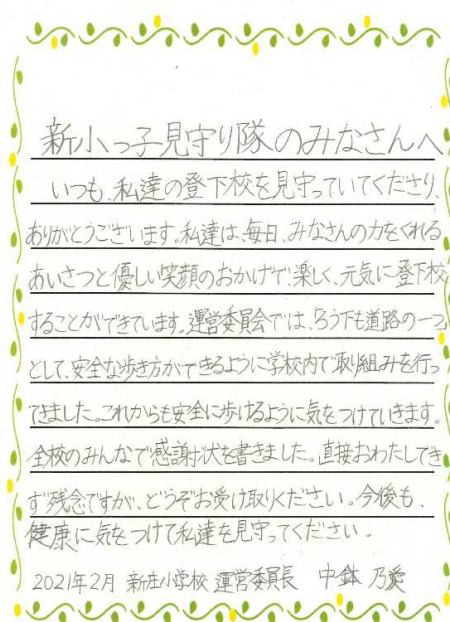 新小っ子見守り隊のみなさんへ
いつも、私達の登下校を見守っていてくださり、
ありがとうございます。私達は、毎日、みなさんの力をくれる
あいさつと優しい笑顔のおかげで、楽しく、元気に登下校
することができています。運営委員会では、ろう下も道路の一つ
として、安全な歩き方ができるように学校内で取り組みを行っ
てきました。これからも安全に歩けるように気をつけていきます。
全校のみんなで感謝状を書きました。直接おわたしでき
ず残念ですが、どうぞお受け取りください。今後も、
健康に気をつけて私達を見守ってください。
2021年2月 新庄小学校 運営委員長 中鉢 乃愛